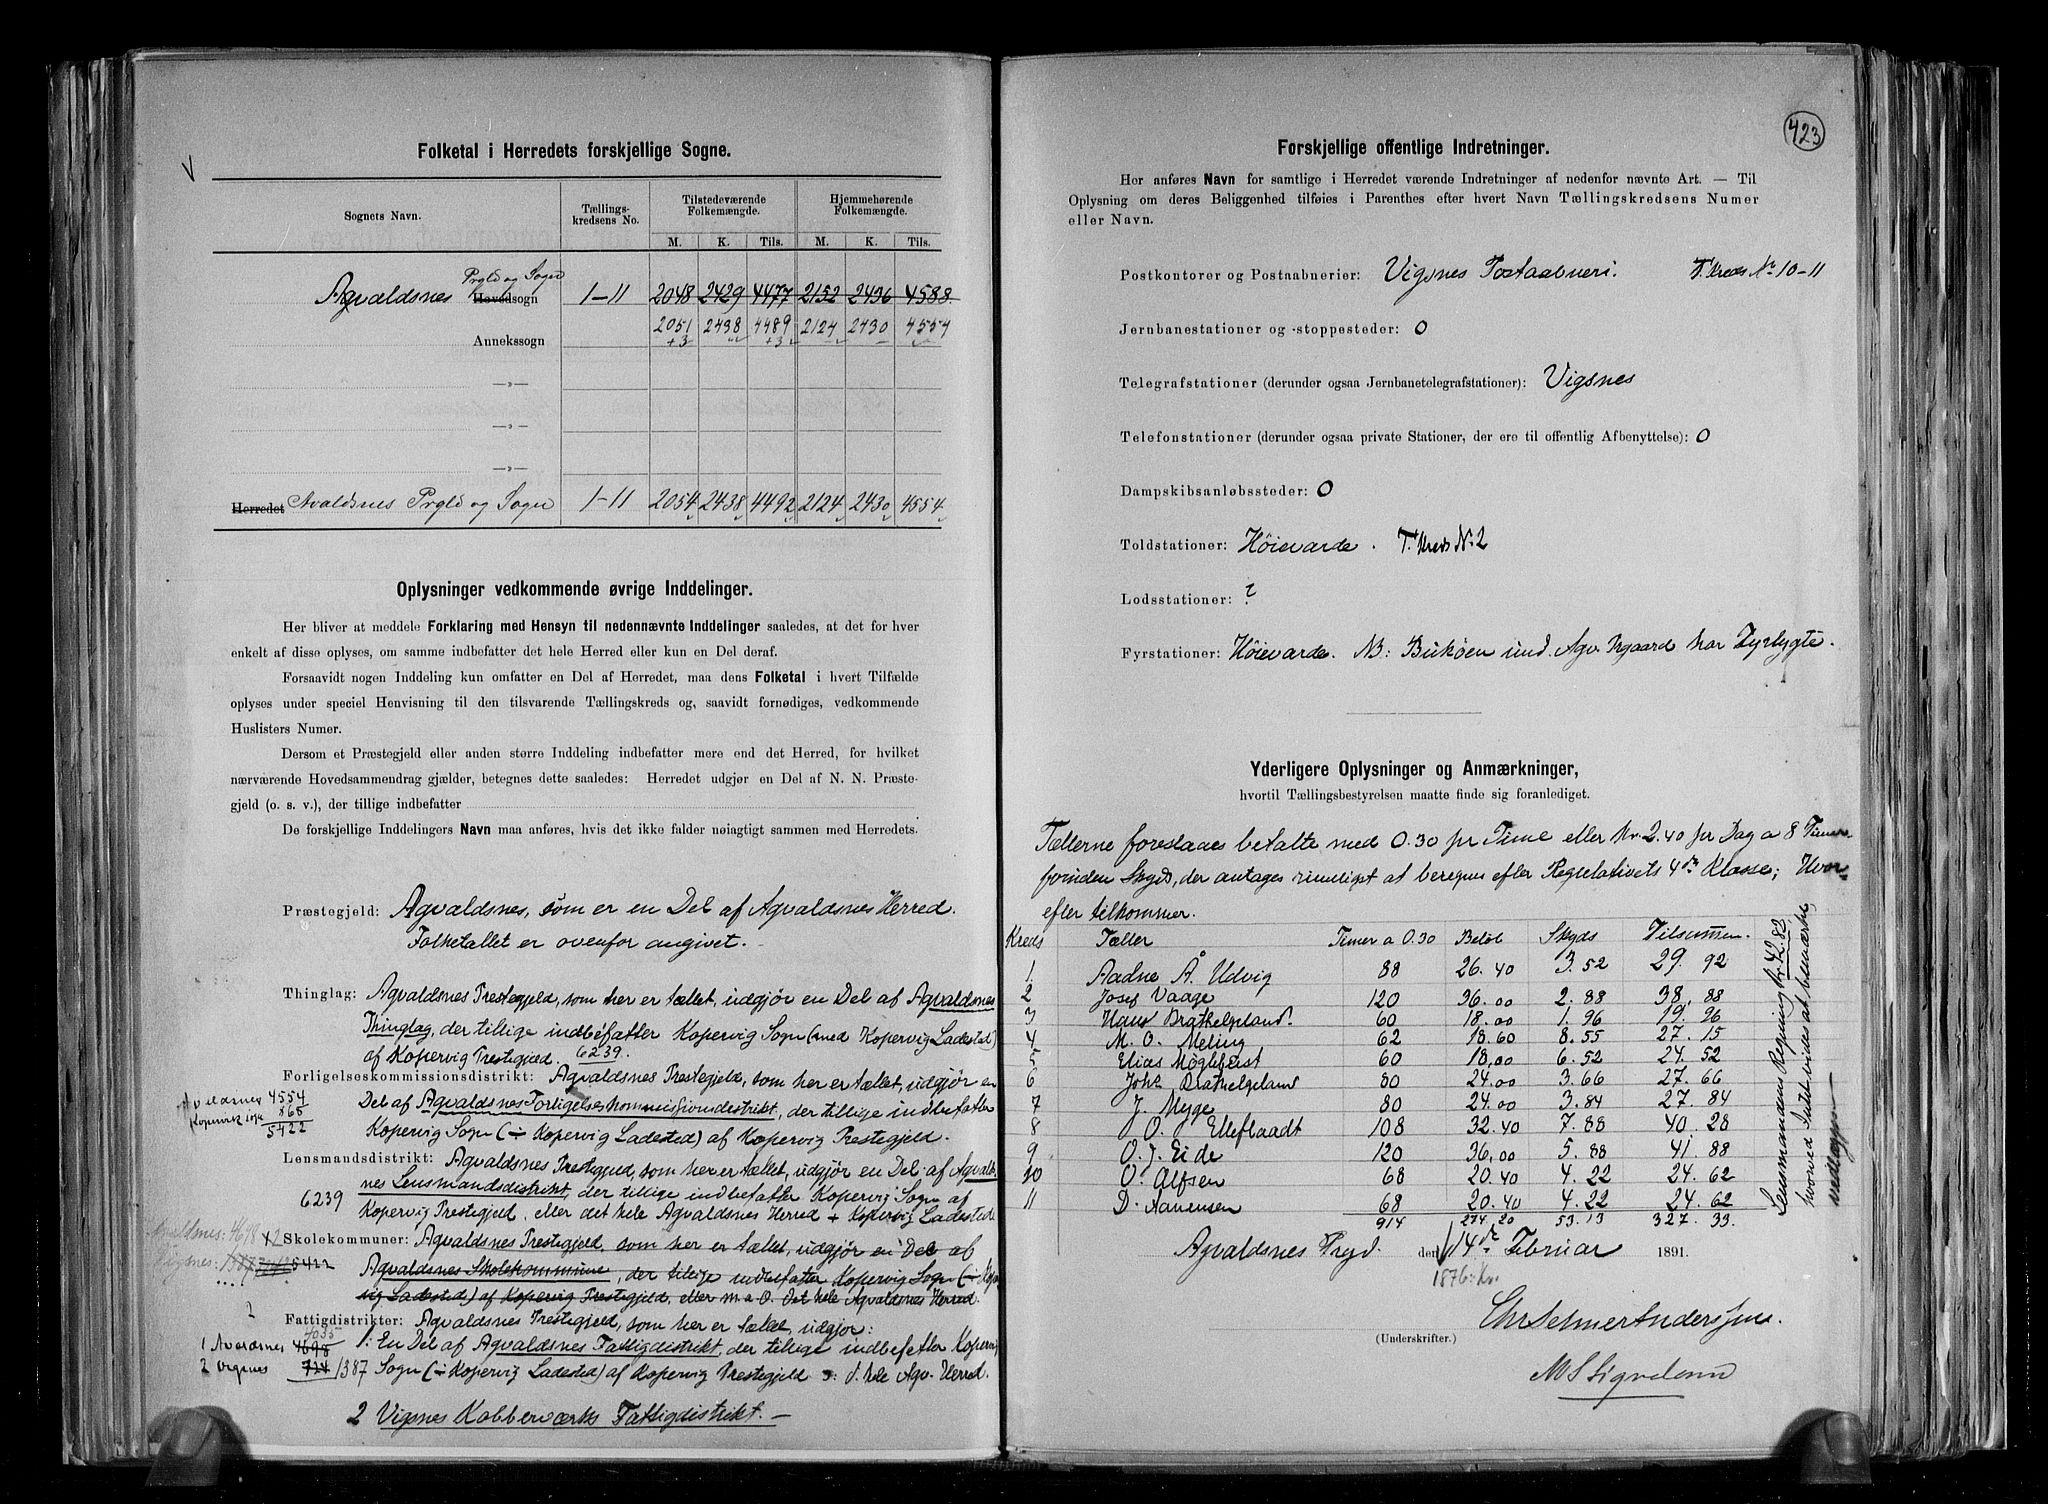 V
Folketal i Herredets forskjellige Sogne.
Sognets Navn. Tællings-kredsens No. Tilstedeværende Folkemængde. Hjemmehørende Folkemængde.
M. K. Tils. M. K. Tils.
Prgld og Sogn
Agvaldsnes Hovedsogn 1-11 2048 2429 4477 2152 2436 4588.
2051 2438 4489 2124 2430 4554
Annekssogn +3 +3
—„—
—„—
—„—
Herredet Avaldsnes Prgld og Sogn 1-11 2054 2438 4492 2124 2430 4554
Oplysninger vedkommende øvrige Inddelinger.
Her bliver at meddele Forklaring med Hensyn til nedennævnte Inddelinger saaledes, at det for hver
enkelt af disse oplyses, om samme indbefatter det hele Herred eller kun en Del deraf.
Forsaavidt nogen Inddeling kun omfatter en Del af Herredet, maa dens Folketal i hvert Tilfælde
oplyses under speciel Henvisning til den tilsvarende Tællingskreds og, saavidt fornødiges, vedkommende
Huslisters Numer.
Dersom et Præstegjeld eller anden større Inddeling indbefatter mere end det Herred, for hvilket
nærværende Hovedsammendrag gjælder, betegnes dette saaledes: Herredet udgjør en Del af N. N. Præste-
gjeld (o. s. v.), der tillige indbefatter
De forskjellige Inddelingers Navn maa anføres, hvis det ikke falder nøiagtigt sammen med Herredets.
Præstegjeld: Agvaldsnes, som er en Del af Agvaldsnes Herred.
Folketallet er ovenfor angivet.
Thinglag: Agvaldsnes Prestegjeld, som her er tællet, udgjør en Del af Agvaldsnes
Thinglag, der tillige indbefatter Kopervig Sogn (med Kopervig Ladested)
af Kopervig Prestegjeld. 6239.
Forligelseskommissionsdistrikt: Agvaldsnes Prestegjeld, som her er tællet, udgjør en
Avaldsnes 4554
Del af Agvaldsnes Forligelseskommissionsdistrikt, der tillige indbefatter
865
5422
Kopervig Sogn (÷ Kopervig Ladested) af Kopervig Prestegjeld.
Lensmandsdistrikt: Agvaldsnes Prestegjeld, som her er tællet, udgjør en Del af Agvalds-
nes Lensmandsdistrikt, der tillige indbefatter Kopervig Sogn af
6239
Kopervig Prestegjeld, eller det hele Agvaldsnes Herred + Kopervig Ladested
Skolekommuner: Agvaldsnes Prestegjeld, som her er tællet, udgjør en Del af
5422
Agvaldsnes Skolekommune, der tillige indbefatter Kopervig Sogn (÷ Koper-
vig Ladested) af Kopervig Prestegjeld, eller m. a. O. det hele Agvaldsnes Herred.
Fattigdistrikter: Agvaldsnes Prestegjeld, som her er tællet, udgjør:
4035
1 Avaldsnes 4698 1. En Del af Agvaldsnes Fattigdistrikt, der tillige indbefatter Kopervig
2 Vigsnes 724 1387 Sogn (÷ Kopervig Ladested) af Kopervig Prestegjeld d. hele Agv. Herred.
2 Vigsnes Kobberværks Fattigdistrikt.
423
Forskjellige offentlige Indretninger.
Her anføres Navn for samtlige i Herredet værende Indretninger af nedenfor nævnte Art. — Til
Oplysning om deres Beliggenhed tilføies i Parenthes efter hvert Navn Tællingskredsens Numer
eller Navn.
Postkontorer og Postaabnerier: Vigsnes Postaabneri. T. Kreds No 10-11
Jernbanestationer og -stoppesteder: 0
Telegrafstationer (derunder ogsaa Jernbanetelegrafstationer): Vigsnes
Telefonstationer (derunder ogsaa private Stationer, der ere til offentlig Afbenyttelse): 0
Dampskibsanløbssteder: 0
Toldstationer: Høievarde. T. Kreds No 2
Lodsstationer: ?
Fyrstationer: Høievarde. NB: Bukøen und. Agv. Prgaard har Fyrlygte.
Yderligere Oplysninger og Anmærkninger,
hvortil Tællingsbestyrelsen maatte finde sig foranlediget.
Tællerne foreslaaes betalte med 0.30 pr Time eller Kr. 2.40 pr Dag a 8 Timer
foruden Skyds, der antages rimeligst at beregnes efter Reglelativets 4de Klasse; Hvor-
efter tilkommer.
Kreds Tæller Timer a 0.30 Beløb Skyds Tilsammen.
1 Aadne Å. Udvig 88 26.40 3.52 29.92
2 Josef Vaage 120 36.00 2.88 38.88
3 Hans Brathelgeland. 60 18.00 1.96 19.96
4 M. O. Meling 62 18.60 8.55 27.15
5 Elias Møglebust 60 18.00 6.52 24.52
6 Johs Brathelgeland 80 24.00 3.66 27.66
7 J. Myge 80 24.00 3.84 27.84
8 O. Elleflaadt 108 32.40 7.88 40.28
9 O. J. Eide 120 36.00 5.88 41.88
10 O. Alfsen 68 20.40 4.22 24.62
11 D. Aanensen 68 20.40 4.22 24.62
914 274.20 53.13 327.33.
Lensmandens Regning Kr. 42.82,
hvorved Intet vides at bemærke,
vedlægges
Agvaldsnes Prgd. den 14de Februar 1891.
1876: Kr.
Chr Selmer Anderssen.
(Underskrifter.)
M S Sigveland